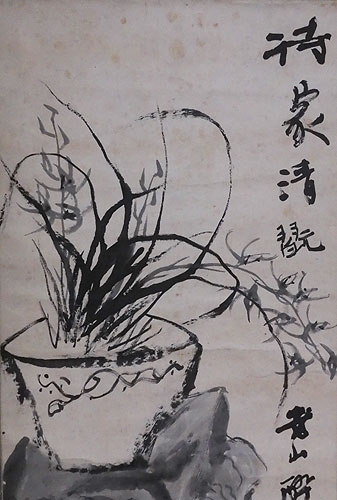 詩家清翫
山